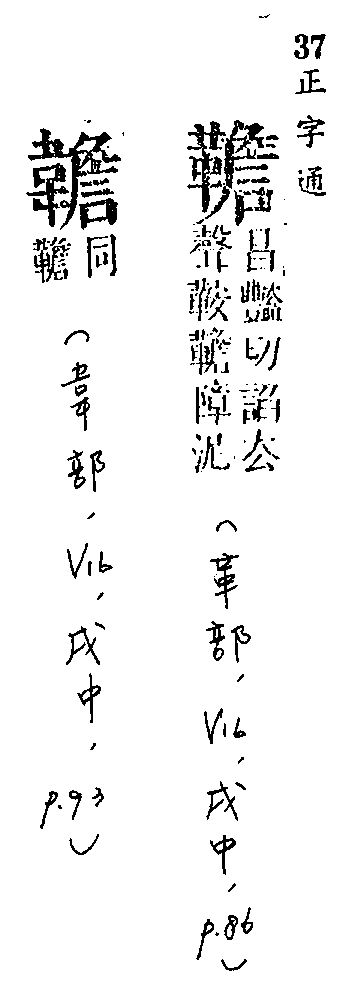 37正字通
韂
昌豔切諂去
聲鞍韂障泥
(革部, V16, 戌中, p.86)
同
韂
(韋部, V16, 戌中, p.93)